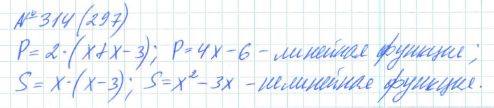 № 314 (297)
P = 2·(x+x-3); P = 4x - 6 - линейная функция;
S = x·(x-3); S = x² - 3x - нелинейная функция.